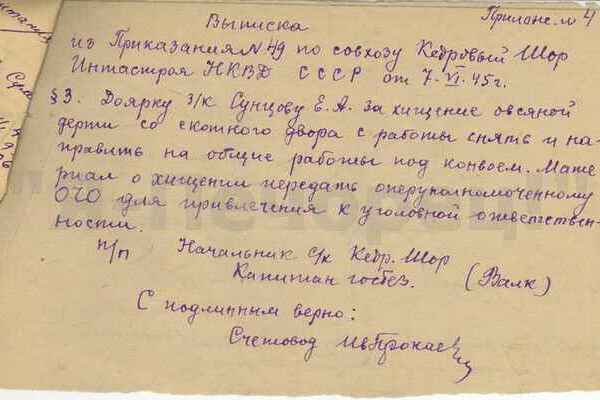 Прилож. № 4
Выписка
из Приказания № 49 по совхозу Кедровый Шор
Интастроя НКВД СССР от 7.VI.45 г.
§ 3. Доярку з/к Сунцову Е.А. за хищение овсяной
дерти со скотного двора с работы снять и на-
править на общие работы под конвоем. Мате
риал о хищении передать оперуполномоченному
ОЧО для привлечения к уголовной ответствен-
ности.
п/п Начальник с/х Кедр. Шор
Капитан госбез. (Валк)
С подлинным верно:
Счетовод